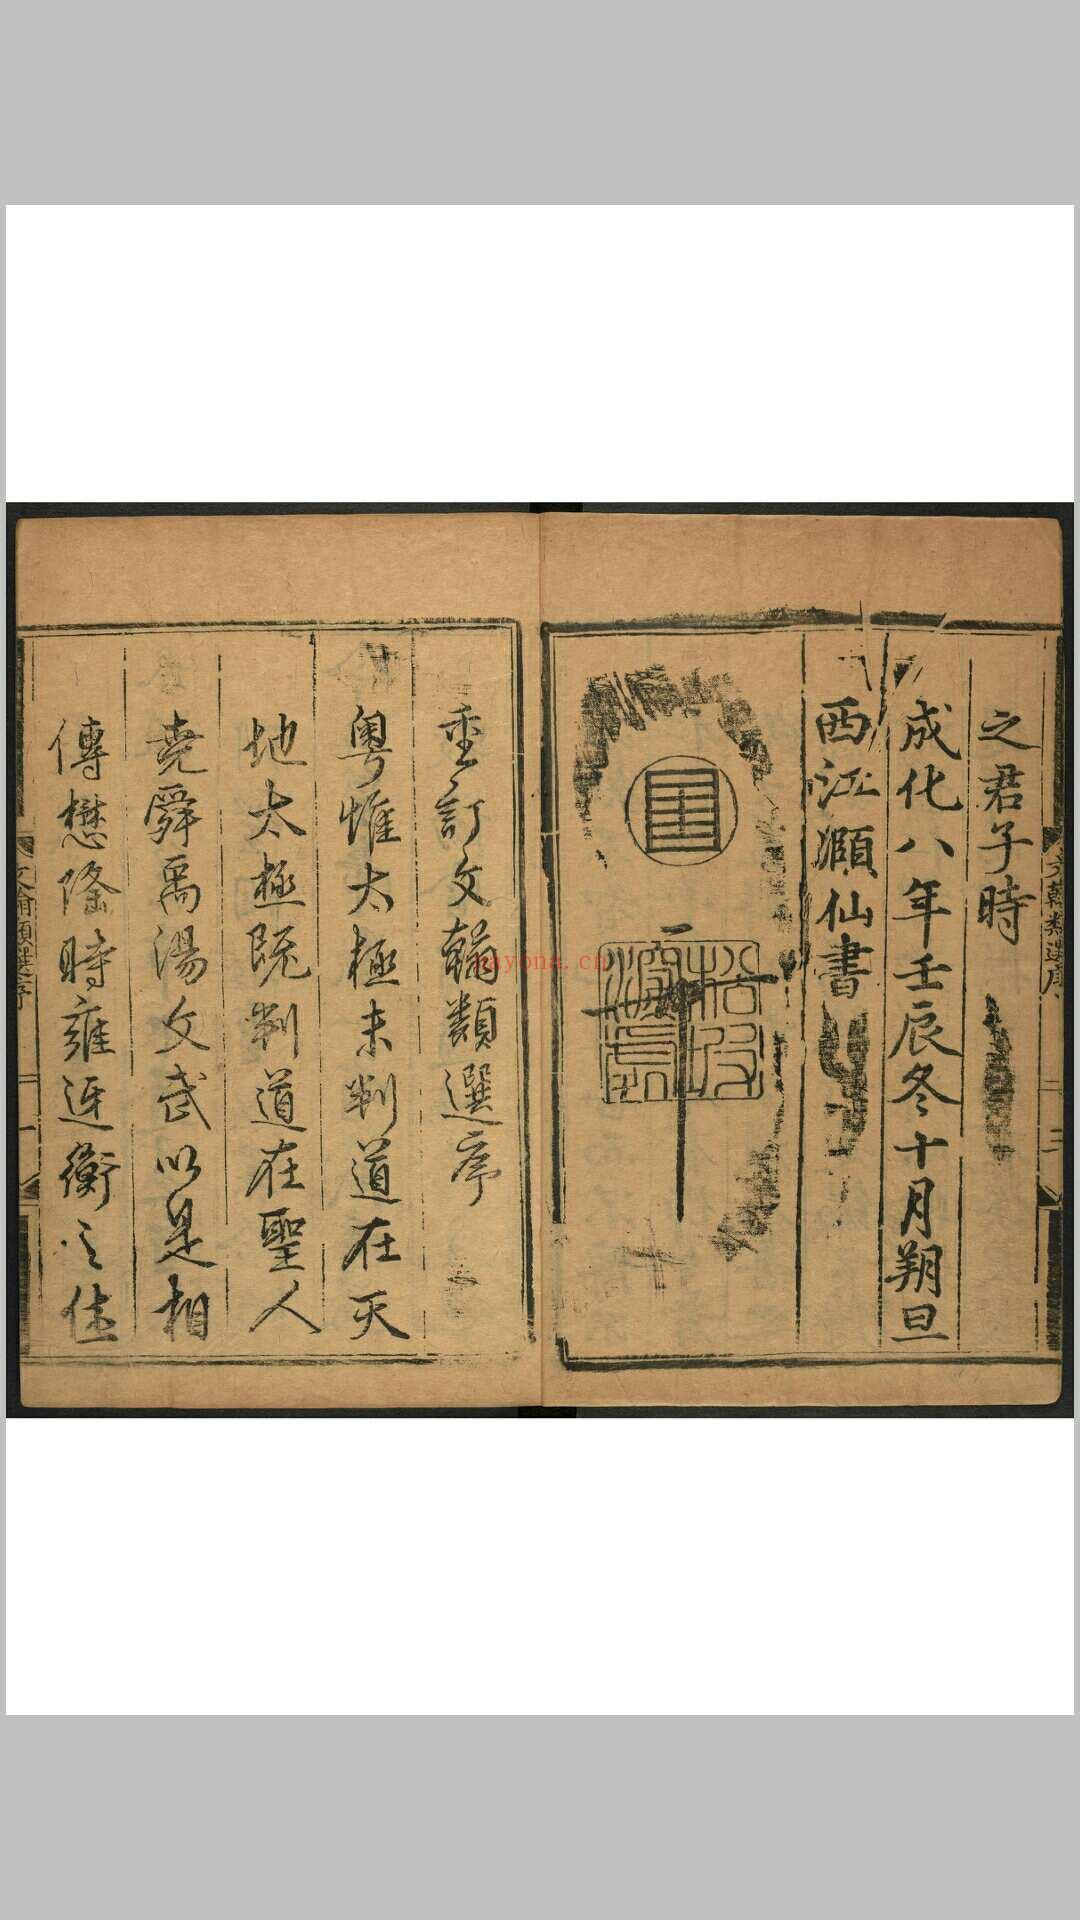 之君子時
成化八年壬辰冬十月朔旦
西江灝仙書
重訂文翰類選序
粵惟太極未判道在天
地太極既判道在聖人
堯舜禹湯文武以是相
傳懋隆時雍迓衡之佳
文翰類選序
文翰類選序
nayona.cn